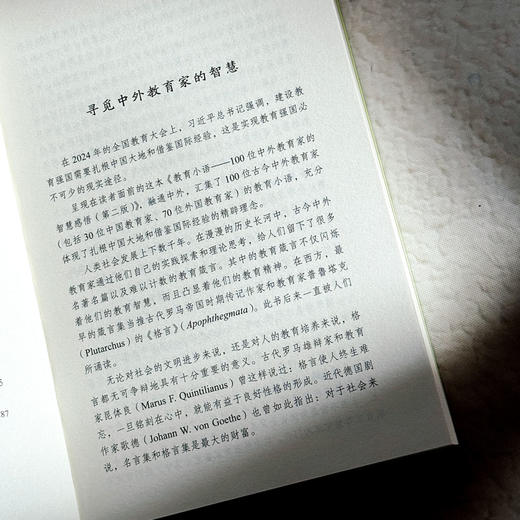 寻觅中外教育家的智慧
在2024年的全国教育大会上，习近平总书记强调，建设教
育强国需要扎根中国大地和借鉴国际经验，这是实现教育强国必
不可少的现实途径。
呈现在读者面前的这本《教育小语——100位中外教育家的
智慧感悟（第二版）》，融通中外，汇集了100位古今中外教育家
（包括30位中国教育家、70位外国教育家）的教育小语，充分
体现了扎根中国大地和借鉴国际经验的精辟理念。
人类社会发展上下数千年。在漫漫的历史长河中，古今中外
教育家通过他们自己的实践探索和理论思考，给人们留下了很多
名著名篇以及难以计数的教育箴言。其中的教育箴言不仅闪烁
着他们的教育智慧，而且凸显着他们的教育精神。在西方，最
早的箴言集当推古代罗马帝国时期传记作家和教育家普鲁塔克
（Plutarchus）的《格言》（Apophthegmata）。此书后来一直被人们
所诵读。
无论对社会的文明进步来说，还是对人的教育培养来说，格
言都无可争辩地具有十分重要的意义。古代罗马雄辩家和教育
家昆体良（Marus F. Quintilianus）曾这样说过：格言使人终生难
忘，一旦铭刻在心中，就能有益于良好性格的形成。近代德国剧
作家歌德（Johann W. von Goethe）也曾如此指出：对于社会来
说，名言集和格言集是最大的财富。
5
87